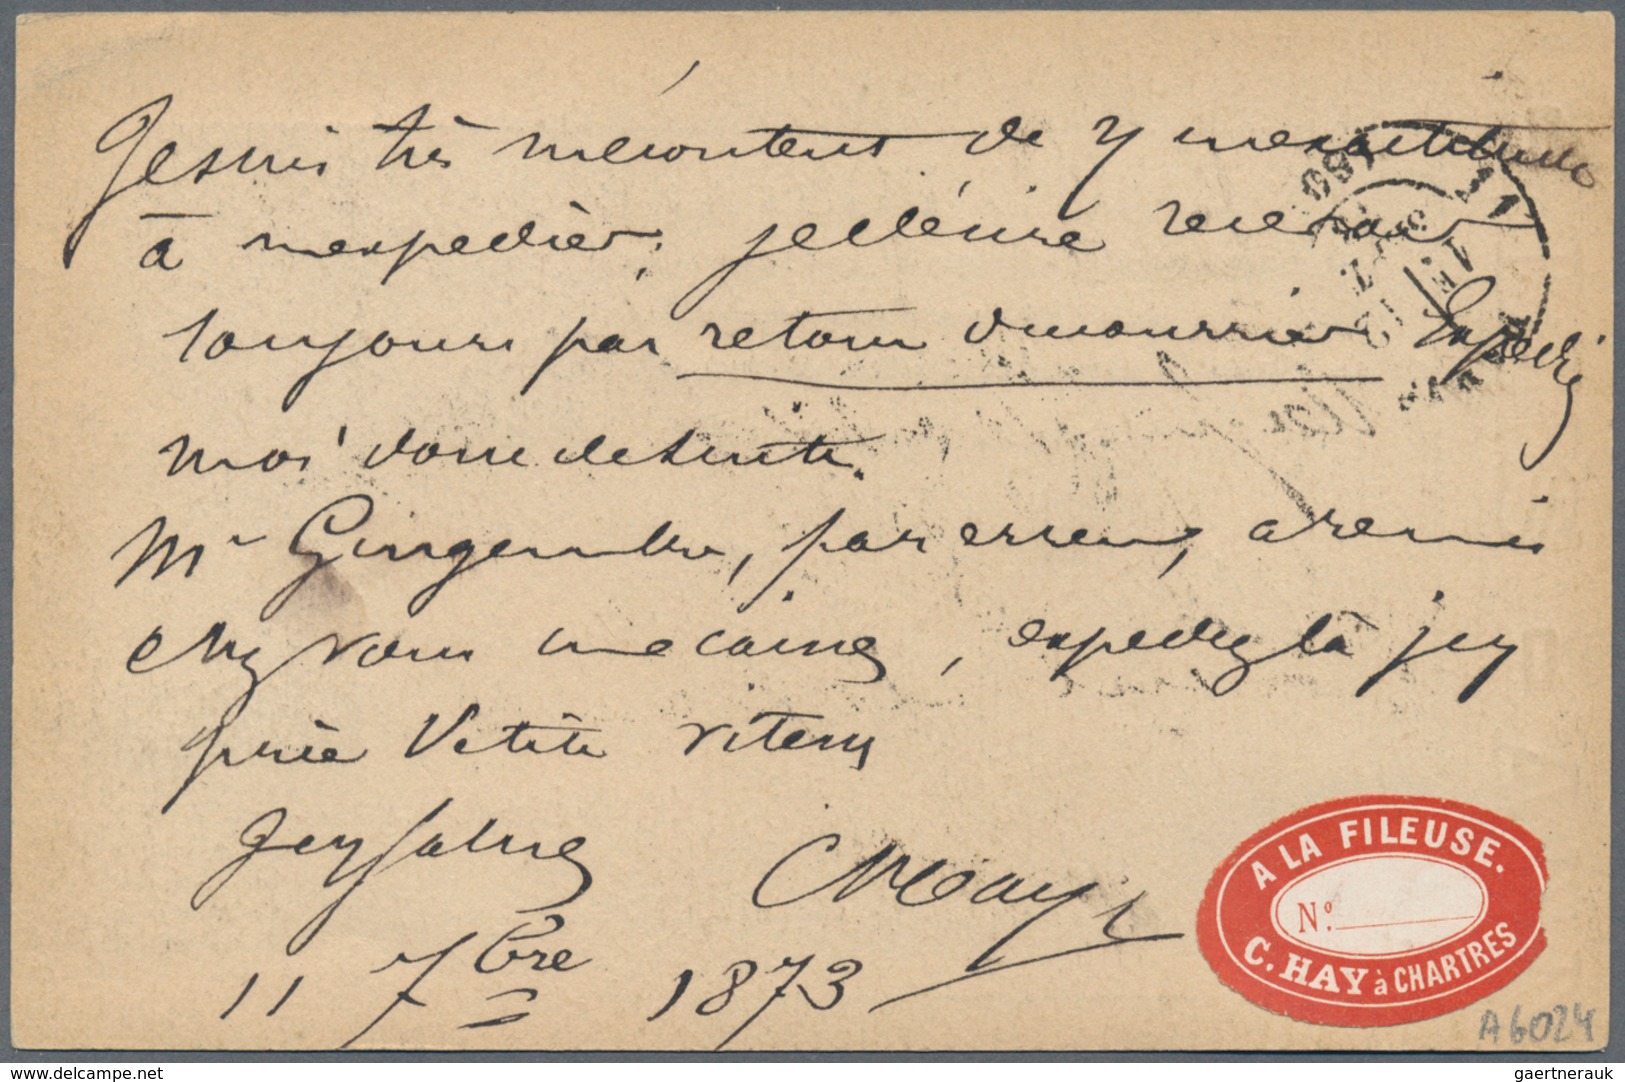 Je suis très mécontent de l'inexactitude
à m'expédier, je désire recevoir
toujours par retour du courrier Expédiez
moi donc de suite.
Mr Gingembre, par erreur, a remis
chez vous me caisse, expédiez la je vs
prie Vite vite
Je vs salue CHay
11 7bre 1873
A LA FILEUSE.
No.
C. HAY à CHARTRES
A6024
delcampe.net
gaertnerauk